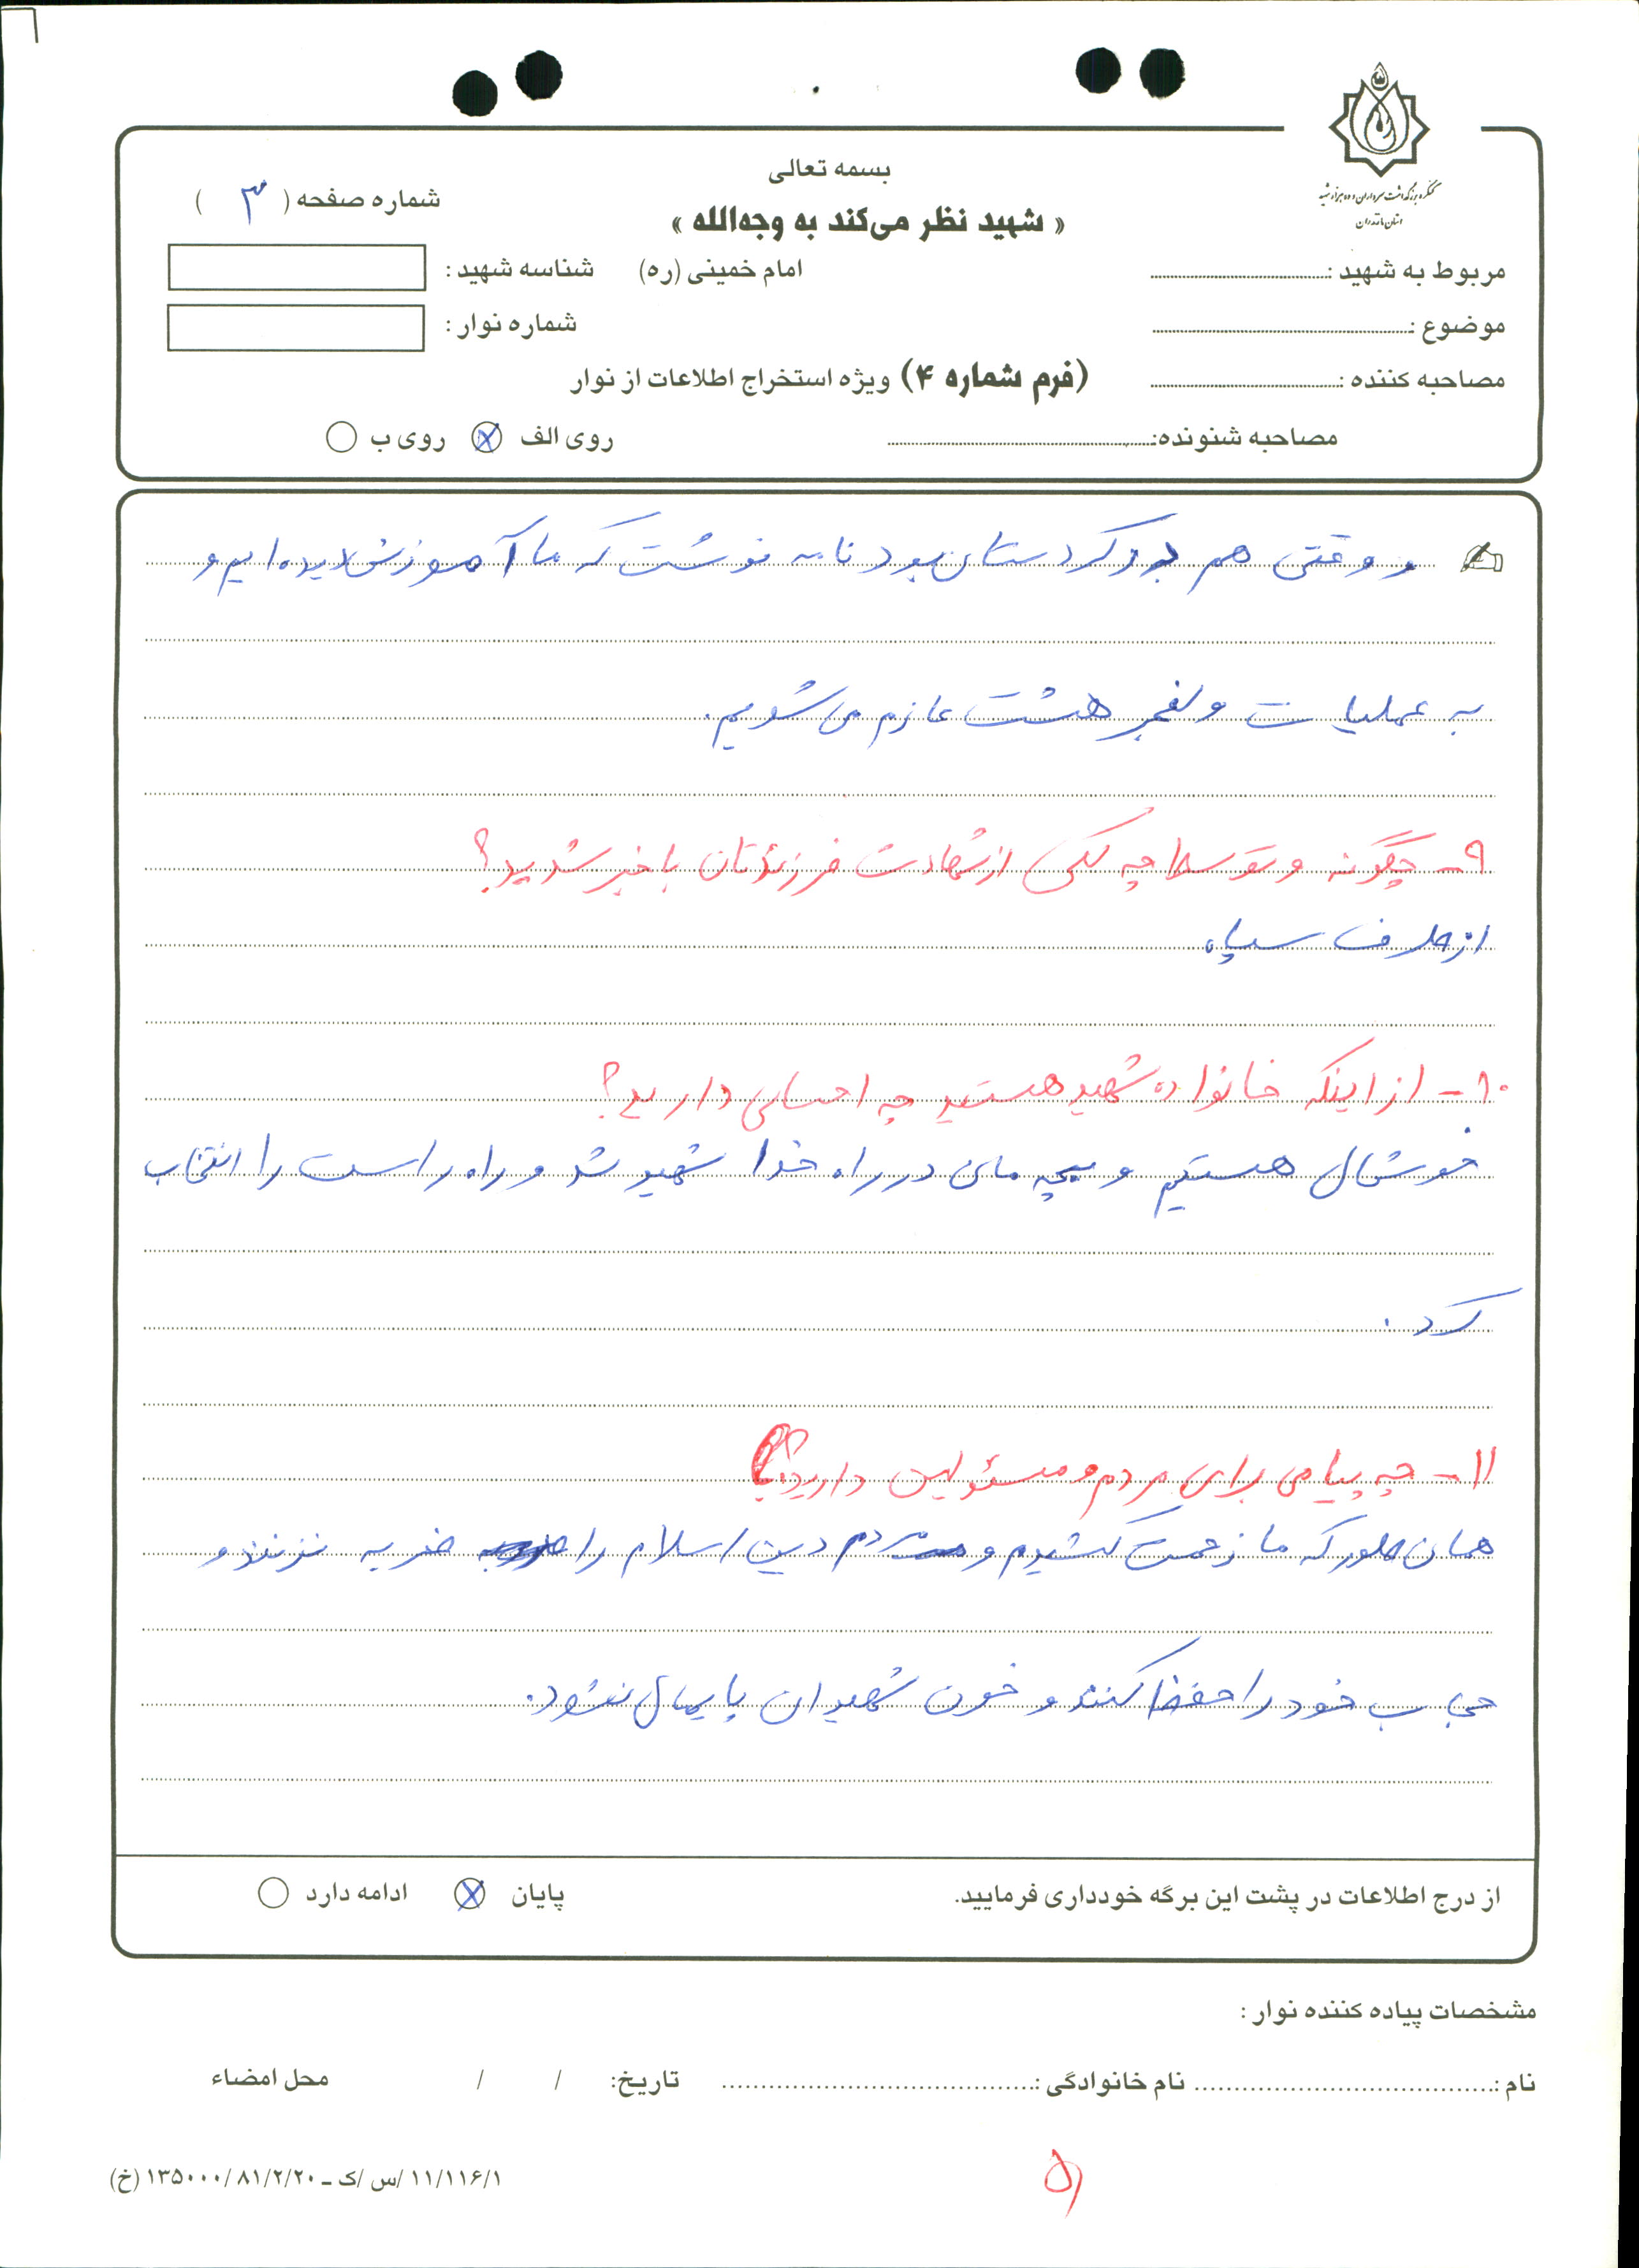 کنگره بزرگداشت سرداران و ده هزار شهید
استان مازندران
بسمه تعالی
« شهید نظر می‌کند به وجه‌الله »
امام خمینی (ره)
شماره صفحه ( ۳ )
مربوط به شهید :
شناسه شهید :
موضوع :
شماره نوار :
مصاحبه کننده :
(فرم شماره ۴) ویژه استخراج اطلاعات از نوار
مصاحبه شنونده:
روی الف
روی ب
و وقتی هم در کردستان بود نامه نوشت که ما آموزش دیده ایم و
به عملیات ولفجر هشت عازم می شویم.
۹- چگونه و توسط چه کسی از شهادت فرزندتان با خبر شدید؟
از طرف سپاه
۱۰- از اینکه خانواده شهید هستید چه احساسی دارید؟
خوشال هستیم و بچه مای در راه خدا شهید شد و راه راست را انتخاب
کرد.
۱۱- چه پیامی برای مردم و مسئولین دارید؟
همان طور که ما زحمت کشیدم و مردم دین اسلام را ضربه نزنند و
حجاب خود را حفظ کنند و خون شهیدان پایمال نشود.
از درج اطلاعات در پشت این برگه خودداری فرمایید.
پایان
ادامه دارد
مشخصات پیاده کننده نوار :
نام :
نام خانوادگی :
تاریخ: / /
محل امضاء
۱۱/۱۱۶/۱ /س /ک ــ ۱۳۵۰۰۰/۸۱/۲/۲۰ (خ)